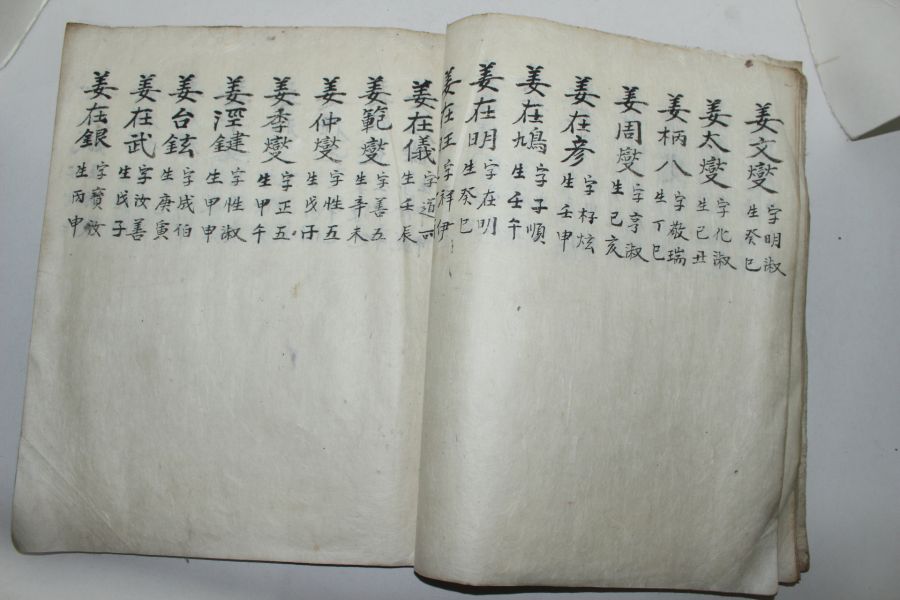 姜文燮 字明淑 生癸巳
姜太燮 字化淑 生己丑
姜柄八 字敬瑞 生丁巳
姜周燮 字亨淑 生己亥
姜在彦 字 炫 生壬申
姜在鳩 字子順 生壬午
姜在明 字在明 生癸巳
姜在 字祥伊
姜在儀 字道 生壬辰
姜範燮 字善五 生辛未
姜仲燮 字性五 生戊子
姜季燮 字正五 生甲午
姜澄鍵 字性淑 生甲申
姜台鉉 字成伯 生庚寅
姜在武 字汝善 生戊子
姜在銀 字寶汝 生丙申